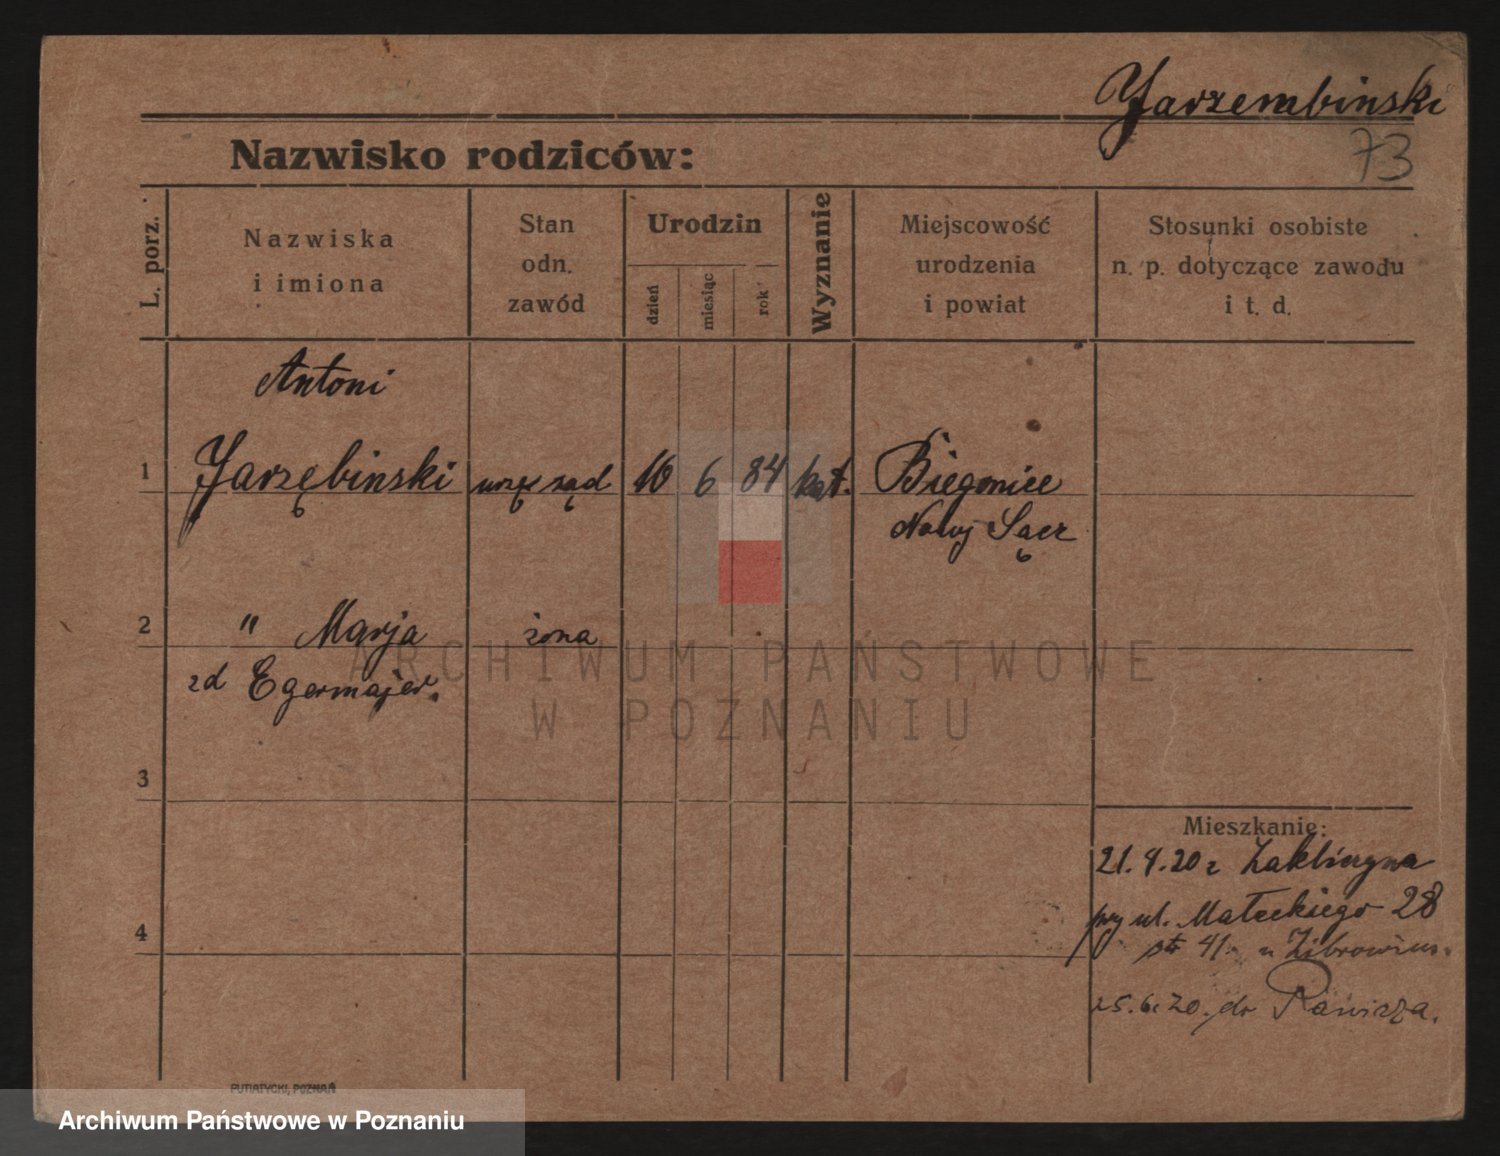 Jarzembinski
73
Nazwisko rodziców:
L. porz.
Nazwiska
i imiona
Stan
odn.
zawód
Urodzin
dzień
miesiąc
rok
Wyznanie
Miejscowość
urodzenia
i powiat
Stosunki osobiste
n. p. dotyczące zawodu
i t. d.
Antoni
1 Jarzębinski 16 6 84 kat. Biegonice
Nowy Sącz
2 " Marja żona
zd Egermajer.
ARCHIWUM PAŃSTWOWE
W POZNANIU
3
Mieszkanie:
21. 4. 20 z
przy ul. Małeckiego 28
4
ptr 41. u Zibrowius.
25. 6. 20. do Rawicza.
PUTIATYCKI, POZNAŃ
Archiwum Państwowe w Poznaniu